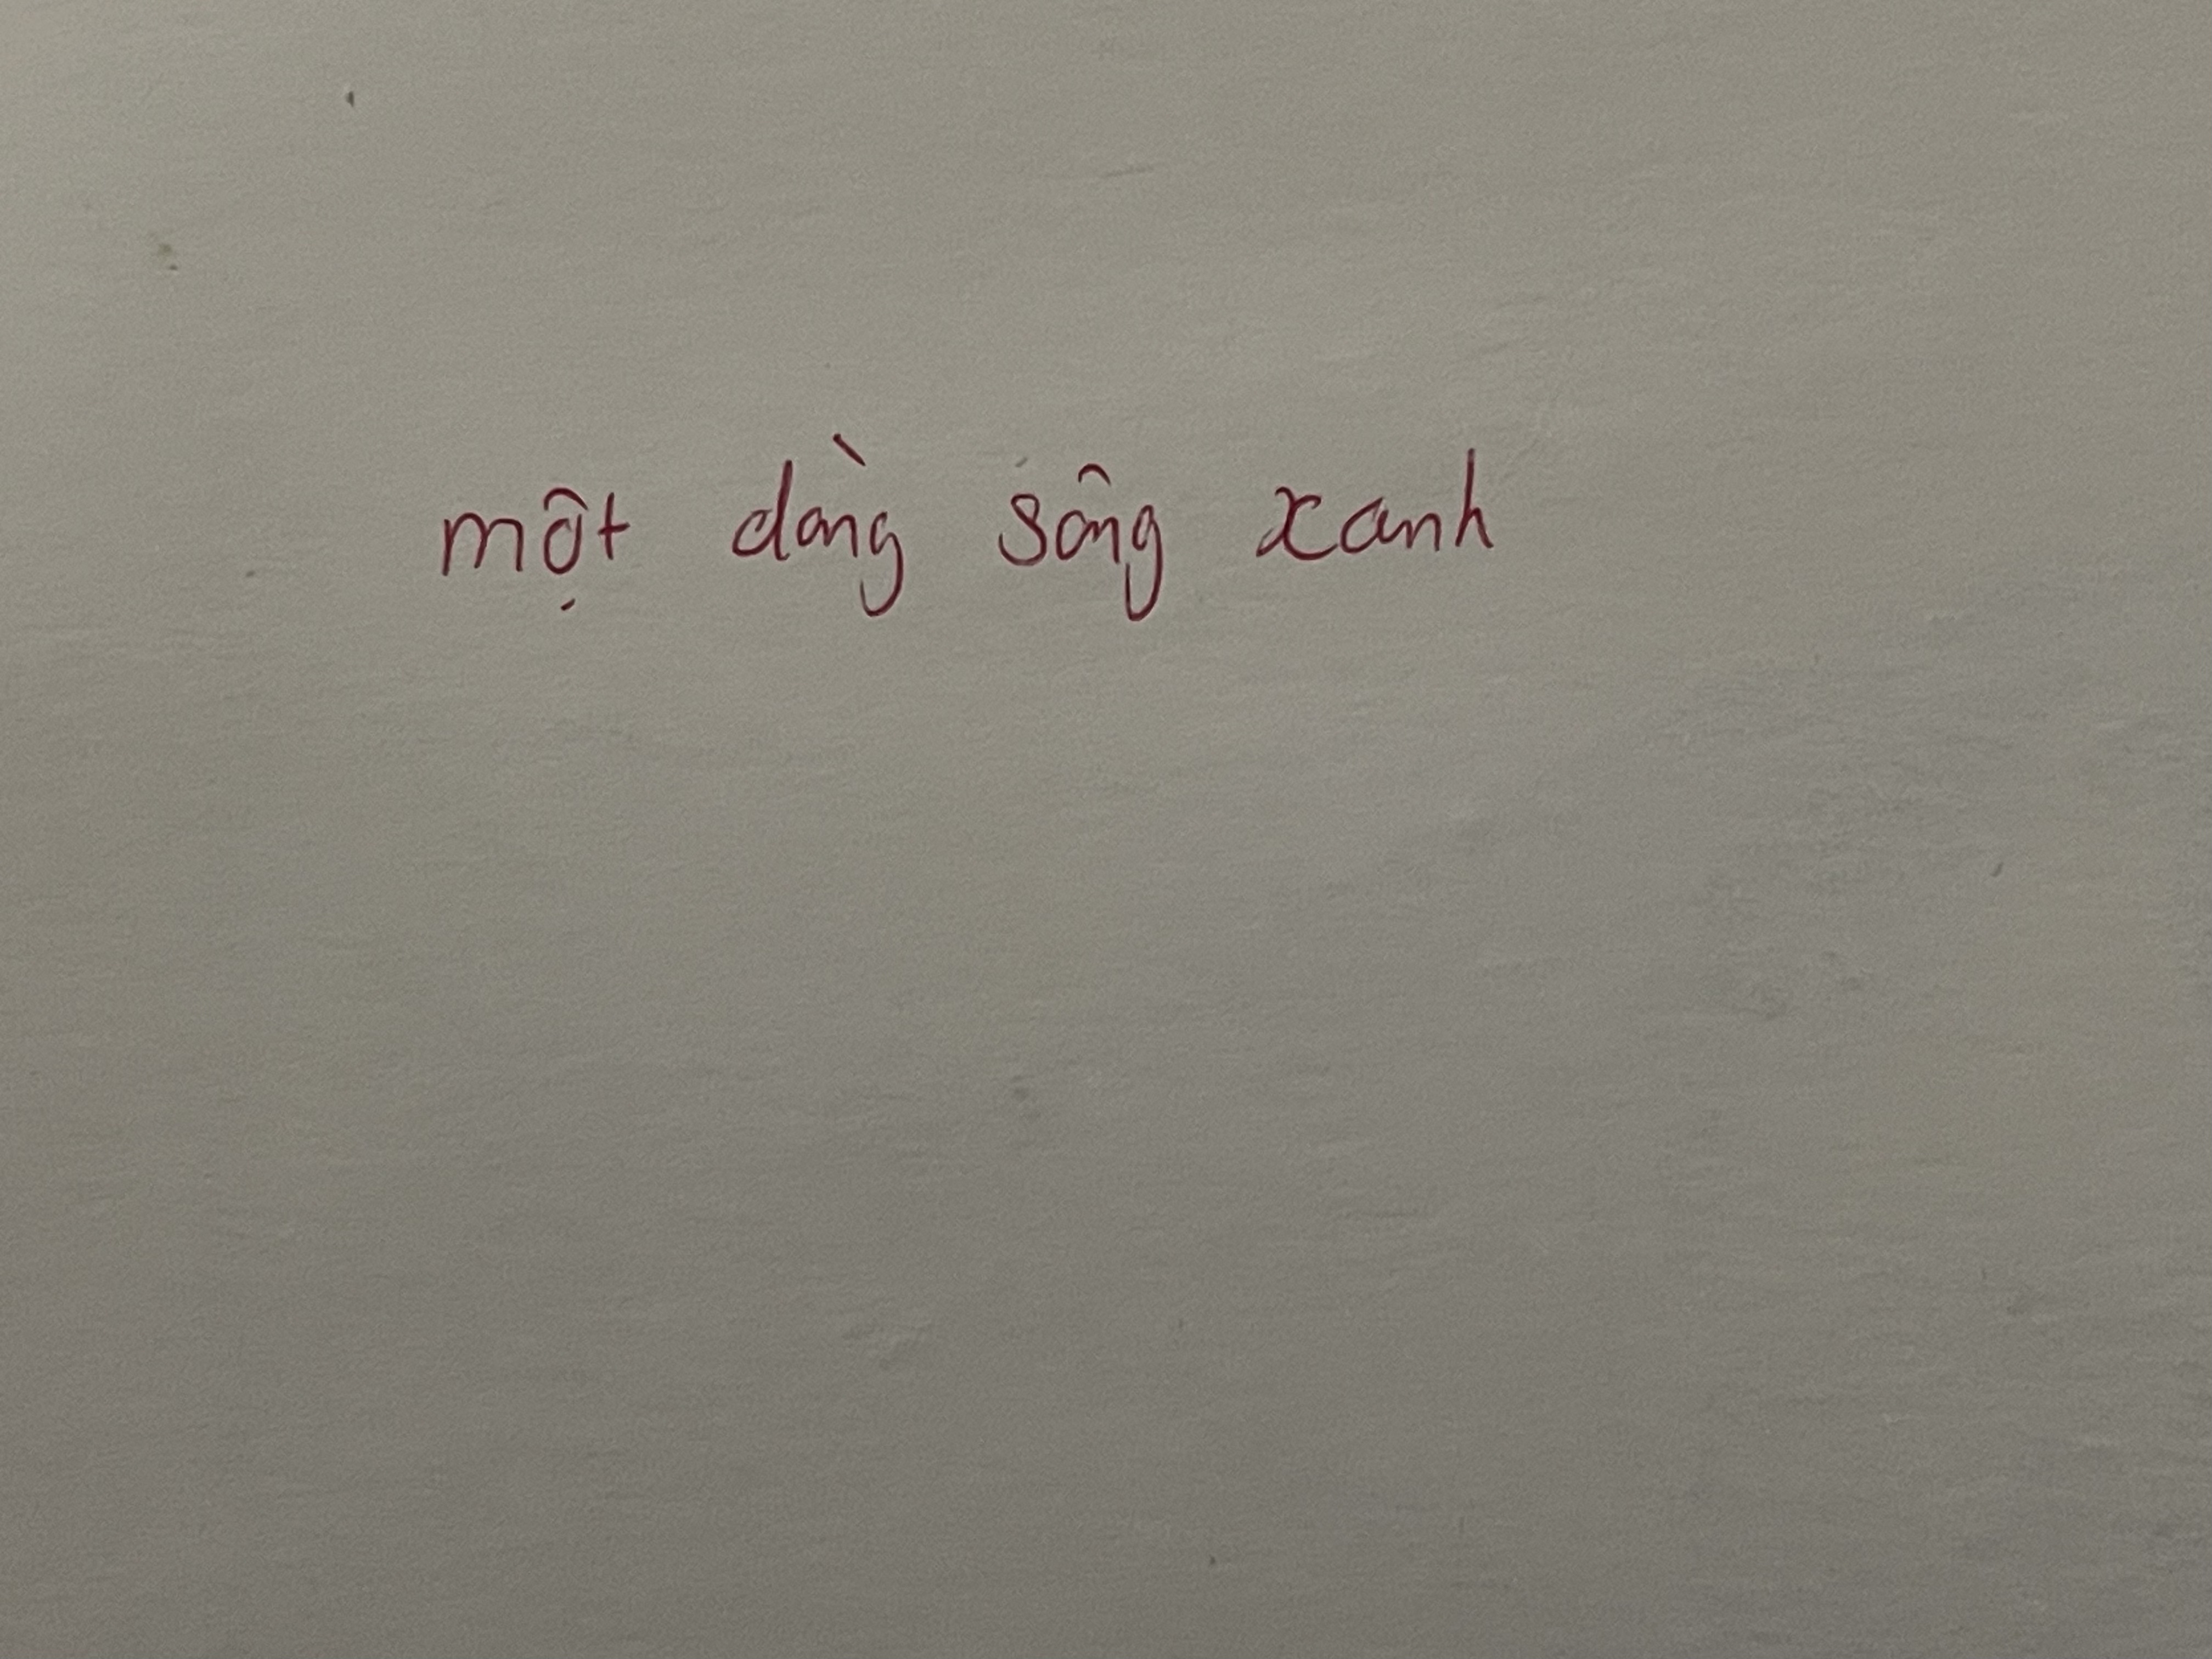 một dòng sông xanh